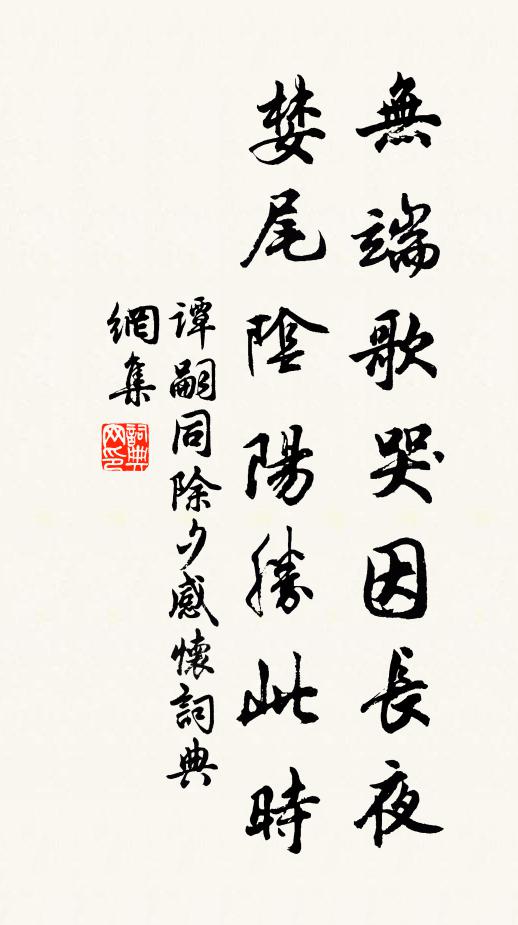 無端歌哭因長夜
婪尾陰陽勝此時
谭嗣同除夕感懷詞典
網集
詞典網印